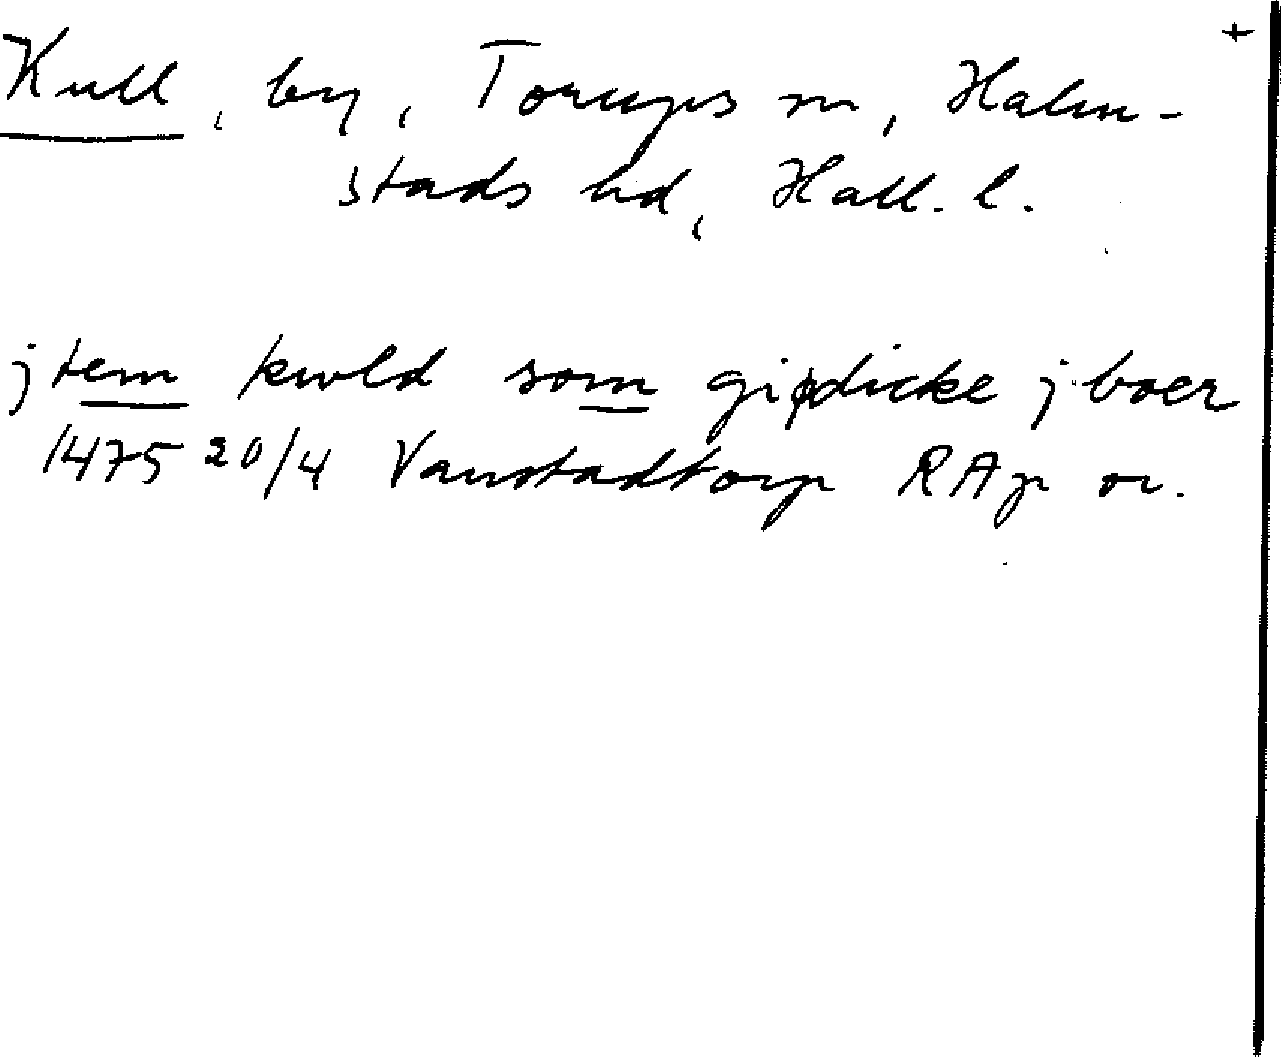 +
Kull, by, Torups sn, Halm-
stads hd, Hall. l.
jtem kwld som gipdicke j boer
1475 20/4 Vanstadtorp RAp or.